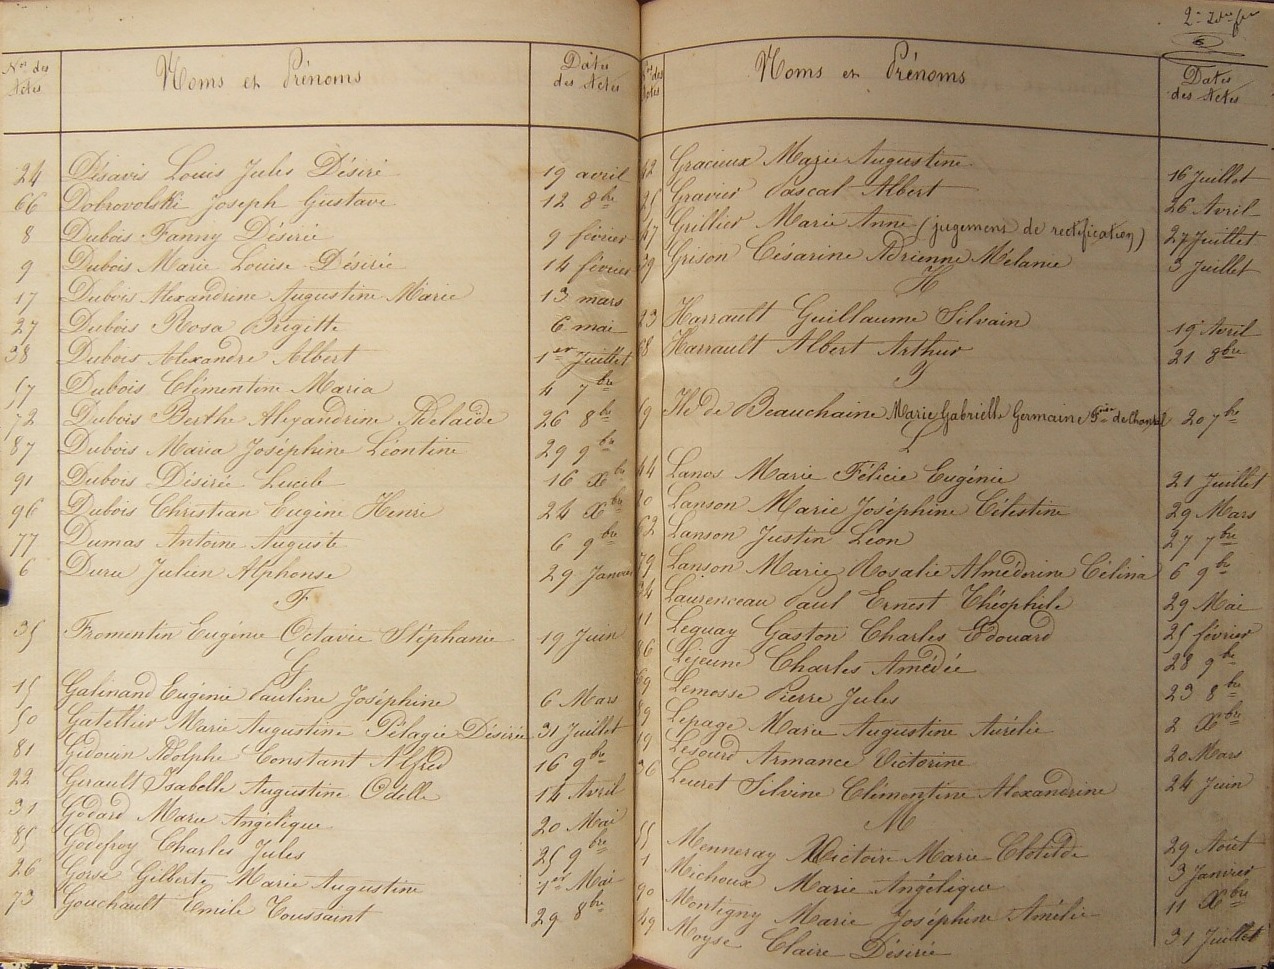 Nos des Actes Noms et Prénoms Dates des Actes
24 Désavis Louis Jules Désiré 19 avril
66 Dobrovolski Joseph Gustave 12 8bre
8 Dubois Fanny Désirée 9 février
9 Dubois Marie Louise Désirée 14 février
17 Dubois Alexandrine Augustine Marie 13 mars
27 Dubois Rosa Brigitte 6 mai
38 Dubois Alexandre Albert 1er Juillet
57 Dubois Clémentine Maria 4 7bre
72 Dubois Berthe Alexandrine Adelaïde 26 8bre
87 Dubois Maria Joséphine Léontine 29 9bre
91 Dubois Désiré Lucile 16 Xbre
96 Dubois Christian Eugène Henri 24 Xbre
77 Dumas Antoine Auguste 6 9bre
6 Duru Julien Alphonse 29 Janvier
F
35 Fromentin Eugénie Octavie Stéphanie 19 Juin
G
15 Galinand Eugénie Pauline Joséphine 6 Mars
50 Gatellier Marie Augustine Pélagie Désirée 31 Juillet
81 Gidouin Adolphe Constant Alfred 16 9bre
22 Girault Isabelle Augustine Odille 14 Avril
31 Godard Marie Angélique 20 Mai
85 Godefroy Charles Jules 25 9bre
26 Gorse Gilberte Marie Augustine 1er Mai
73 Gouchault Emile Toussaint 29 8bre
Nos des Actes Noms et Prénoms Dates des Actes
42 Gracieux Marie Augustine 16 Juillet
25 Gravier Pascal Albert 26 Avril
47 Grillier Marie Anne (jugement de rectification) 27 Juillet
39 Grison Césarine Adrienne Mélanie 3 Juillet
H
23 Harrault Guillaume Silvain 19 Avril
68 Harrault Albert Arthur 21 8bre
I
59 Ile de Beauchaine Marie Gabrielle Germaine 20 7bre
L
44 Lanos Marie Félicie Eugénie 21 Juillet
20 Lanson Marie Joséphine Célestine 29 Mars
62 Lanson Justin Léon 27 7bre
79 Lanson Marie Rosalie Almédorine Célina 6 9bre
34 Laurenceau Paul Ernest Théophile 29 Mai
11 Leguay Gaston Charles Edouard 25 février
86 Lejeune Charles Amédée 28 9bre
69 Lemosse Pierre Jules 23 8bre
89 Lepage Marie Augustine Aurélie 2 Xbre
19 Lesourd Armance Victorine 20 Mars
36 Leuret Silvine Clémentine Alexandrine 24 Juin
M
55 Menneray Victoire Marie Clotilde 29 Août
1 Michoux Marie Angélique 3 Janvier
90 Montigny Marie Joséphine Amélie 11 Xbre
49 Moyse Claire Désirée 31 Juillet